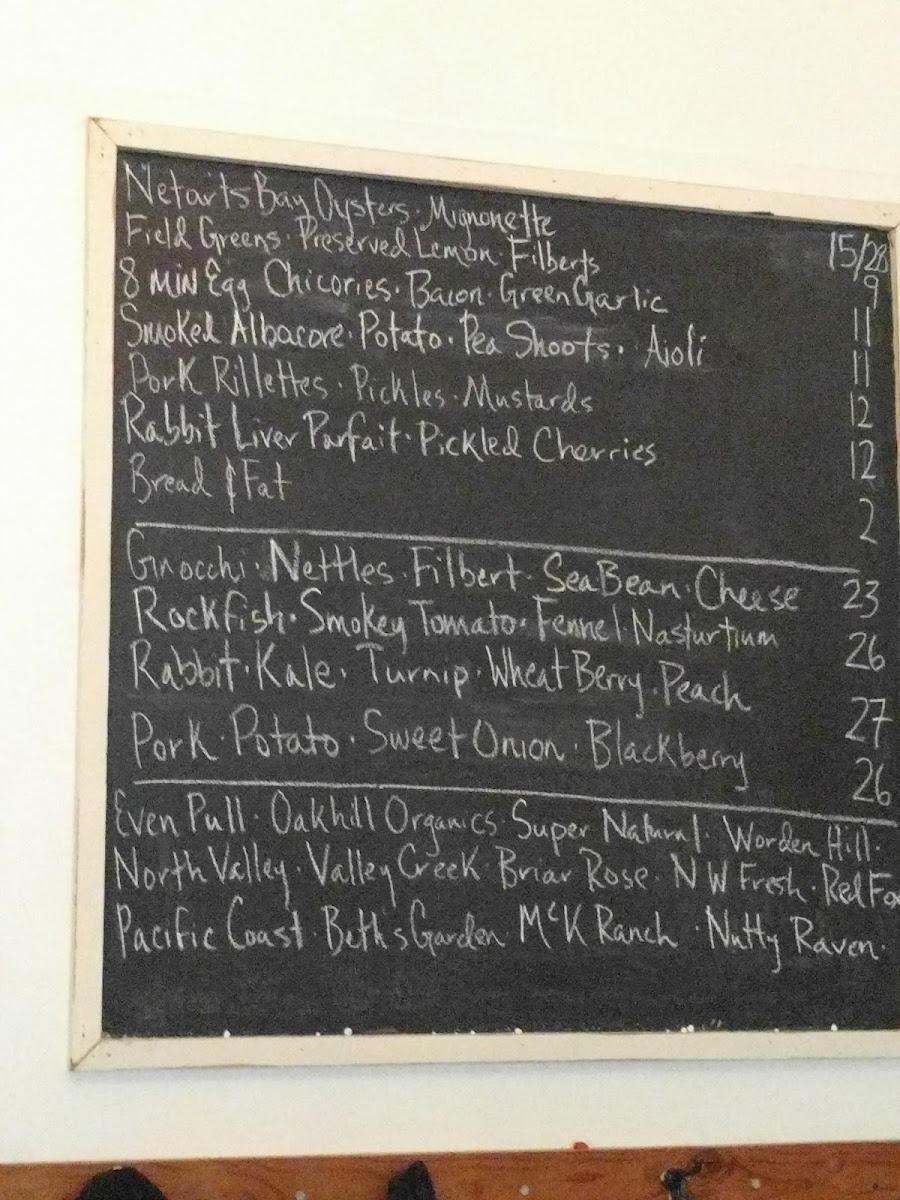 Netarts Bay Oysters · Mignonette 15/28
Field Greens · Preserved Lemon · Filberts 9
8 Min Egg Chicories · Bacon · Green Garlic 11
Smoked Albacore · Potato · Pea Shoots · Aioli 11
Pork Rillettes · Pickles · Mustards 12
Rabbit Liver Parfait · Pickled Cherries 12
Bread & Fat 2
Gnocchi · Nettles · Filbert · Sea Bean · Cheese 23
Rockfish · Smokey Tomato · Fennel · Nasturtium 26
Rabbit · Kale · Turnip · Wheat Berry · Peach 27
Pork · Potato · Sweet Onion · Blackberry 26
Even Pull · Oakhill Organics · Super Natural · Worden Hill ·
North Valley · Valley Creek · Briar Rose · NW Fresh · Red Fox
Pacific Coast · Beth's Garden · McK Ranch · Nutty Raven ·